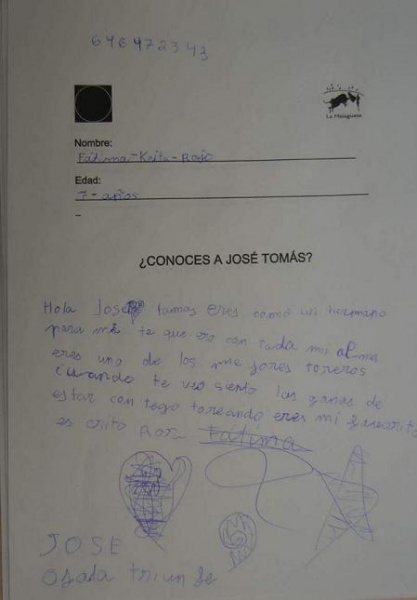 646472343
La Malagueta
Nombre:
Fátima-Keita-Rojo
Edad:
7-años
¿CONOCES A JOSÉ TOMÁS?
Hola Jose tomas eres como un hermano
para mi te que ero con toda mi alma
eres uno de los me jores toreros
cuando te veo siento las ganas de
estar con tego toreando eres mi favorito
es crito por Fátima
JOSE
Ojala triunfe